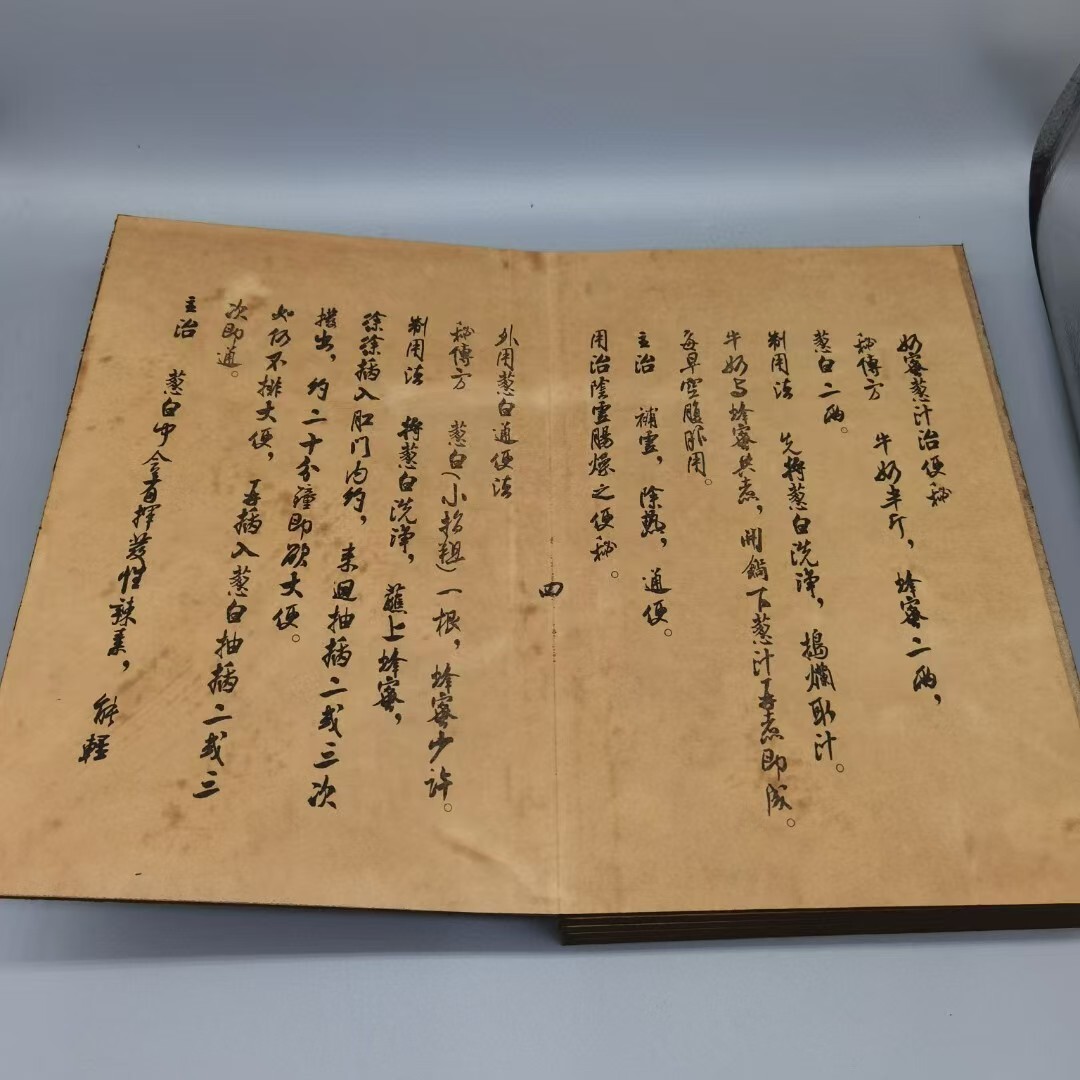 奶蜜葱汁治便秘
秘傳方 牛奶半斤，蜂蜜二两，
葱白二两。
制用法 先將葱白洗净，搗爛取汁。
牛奶与蜂蜜共煮，開鍋下葱汁再煮即成。
每早空腹服用。
主治 補虚，除热，通便。
用治陰虚腸燥之便秘。
四
外用葱白通便法
秘傳方 葱白（小指粗）一根，蜂蜜少許。
制用法 將葱白洗净，蘸上蜂蜜，
徐徐插入肛门内约，来回抽插二或三次
拨出，约二十分鐘即欲大便。
如仍不排大便，再插入葱白抽插二或三
次即通。
主治 葱白中含有揮發性辣素，能軽